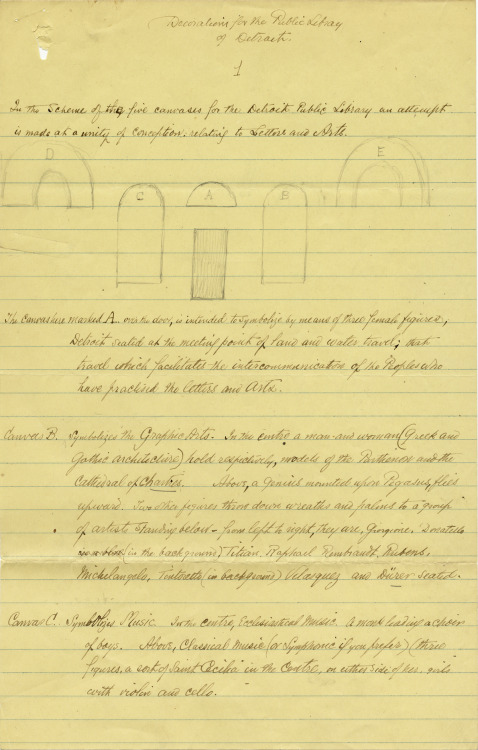 Decorations for the Public Library
of Detroit.
1
In the Scheme of the five canvases for the Detroit Public Library an attempt
is made at a unity of conception: relating to Letters and Arts.
D
E
C
A
B
The Canvas here marked A over the door, is intended to symbolize by means of three female figures,
Detroit seated at the meeting point of land and water travel; that
travel which facilitates the intercommunication of the Peoples who
have practised the letters and Arts.
Canvas B. Symbolizes the Graphic Arts. In the centre a man and woman (Greek and
Gothic architecture) hold respectively, models of the Parthenon and the
Cathedral of Chartres. Above, a Genius mounted upon Pegasus, flies
upward. Two other figures throw down wreaths and palms to a group
of artists standing below – from left to right, they are, Giorgione, Donatello
(in the background) Titian, Raphael Rembrandt, Rubens,
Michelangelo, Tintoretto (in background) Velasquez and Dürer seated.
Canvas C. Symbolizes Music. In the centre, Ecclesiastical Music. A monk leading a choir
of boys. Above, Classical Music (or Symphonic if you prefer) (three
figures, a sort of Saint Cecilia in the Centre, on either side of her, girls
with violin and cello.